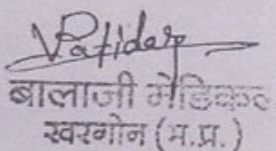 V.Patidar
बालाजी मेडिकल
खरगोन (म.प्र.)